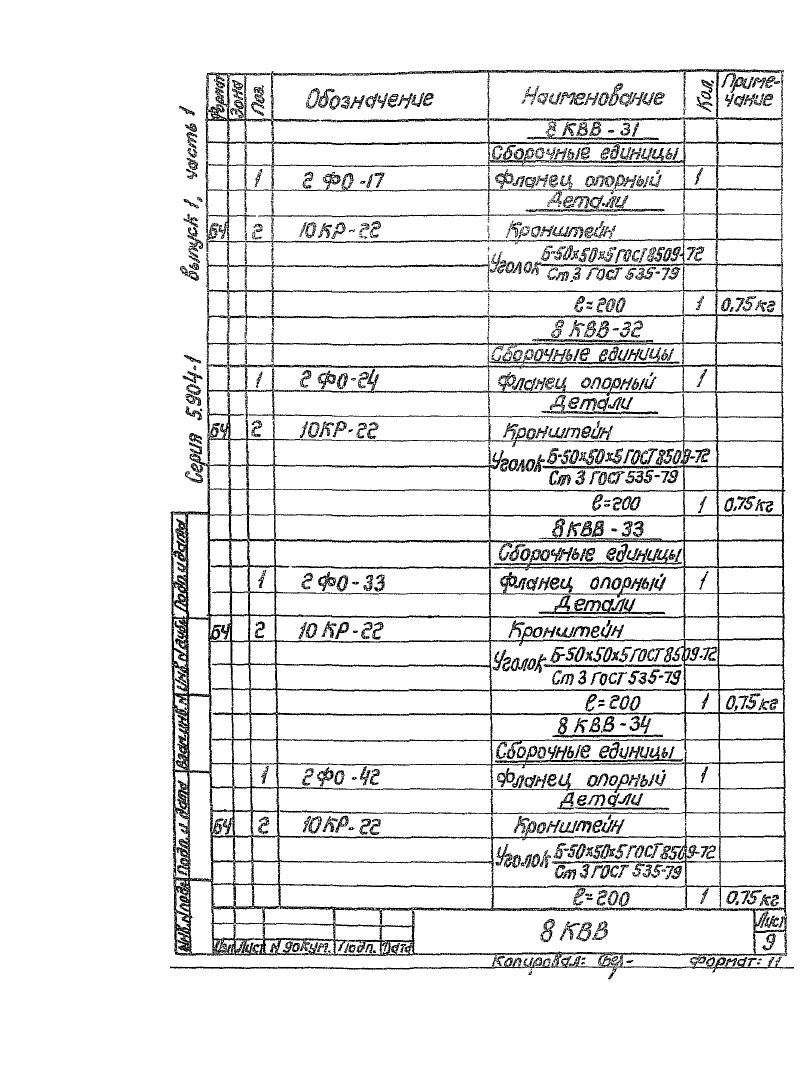 Серия 5.904-1 выпуск 1, часть 1
Формат Зона Поз. Обозначение Наименование Кол. Приме-
чание
8 КВВ - 31
Сборочные единицы
1 2 ФО -17 Фланец опорный 1
Детали
БЧ 2 10 КР-22 Кронштейн
Уголок Б-50х50х5 ГОСТ 8509-72
Ст.3 ГОСТ 535-79
ℓ=200 1 0,75 кг
8 КВВ-32
Сборочные единицы
1 2 ФО-24 Фланец опорный 1
Детали
БЧ 2 10КР-22 Кронштейн
Уголок Б-50х50х5 ГОСТ 8509-72
Ст 3 ГОСТ 535-79
ℓ=200 1 0,75 кг
8 КВВ - 33
Сборочные единицы
1 2 ФО-33 Фланец опорный 1
Детали
БЧ 2 10 КР-22 Кронштейн
Уголок Б-50х50х5 ГОСТ 8509-72
Ст 3 ГОСТ 535-79
ℓ=200 1 0,75 кг
8 КВВ-34
Сборочные единицы
1 2ФО-42 Фланец опорный 1
Детали
БЧ 2 10 КР-22 Кронштейн
Уголок Б-50х50х5 ГОСТ 8509-72
Ст 3 ГОСТ 535-79
ℓ=200 1 0,75 кг
Инв. N подл. Подп. и дата Взам. инв. N Инв. N дубл. Подп. и дата
Изм Лист N докум. Подп. Дата
8 КВВ
Лист
9
Копировал: Формат: 11